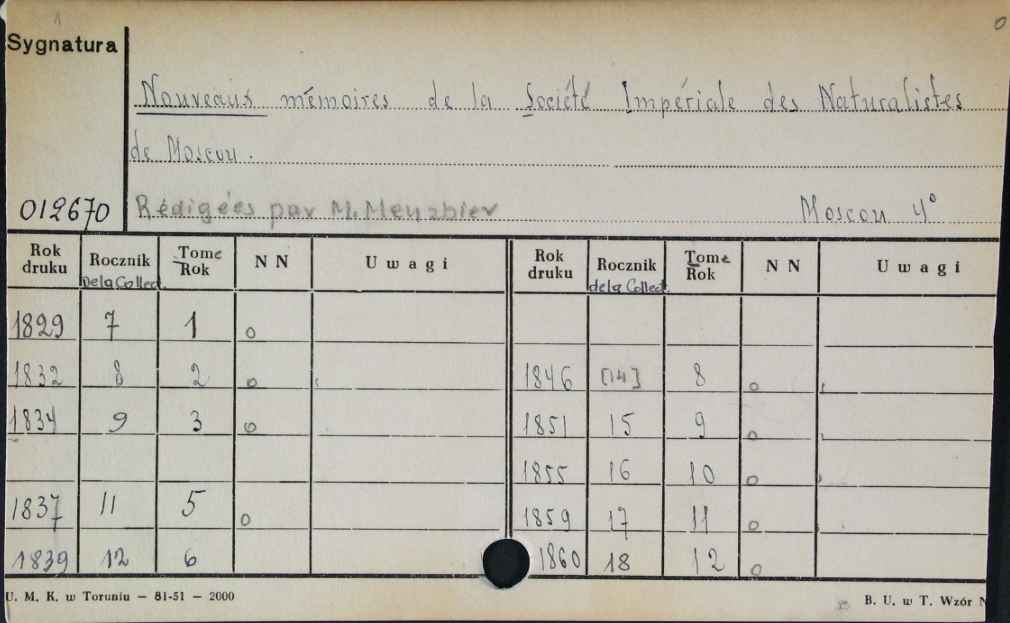 Sygnatura
Nouveaux mémoires de la Société Impériale des Naturalistes
de Moscou.
012670 Rédigées par M. Menzbier Moscou 4°
Rok druku Rocznik Tome Rok NN Uwagi Rok druku Rocznik Tome Rok NN Uwagi
de la Collect. de la Collect.
1829 7 1 o
1832 8 2 o 1846 [14] 8 o
1834 9 3 o 1851 15 9 o
1855 16 10 o
1837 11 5 o 1859 17 11 o
1839 12 6 1860 18 12 o
U. M. K. w Toruniu — 81-51 — 2000 B. U. w T. Wzór N